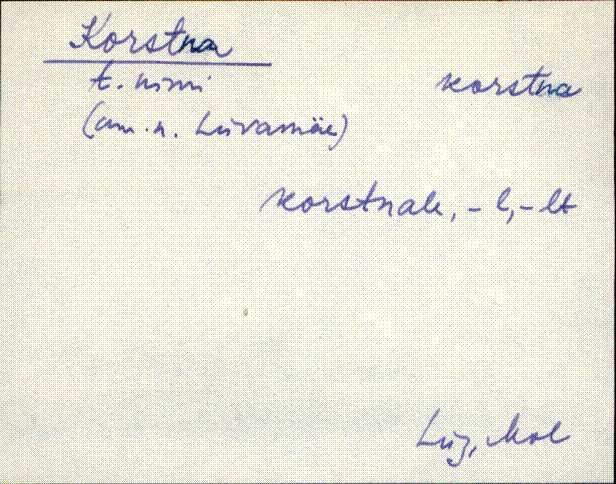 Korstna
t. nimi korstna
(am. n. Liivamäe)
korstnale, -l, -lt
Lüg, Mol